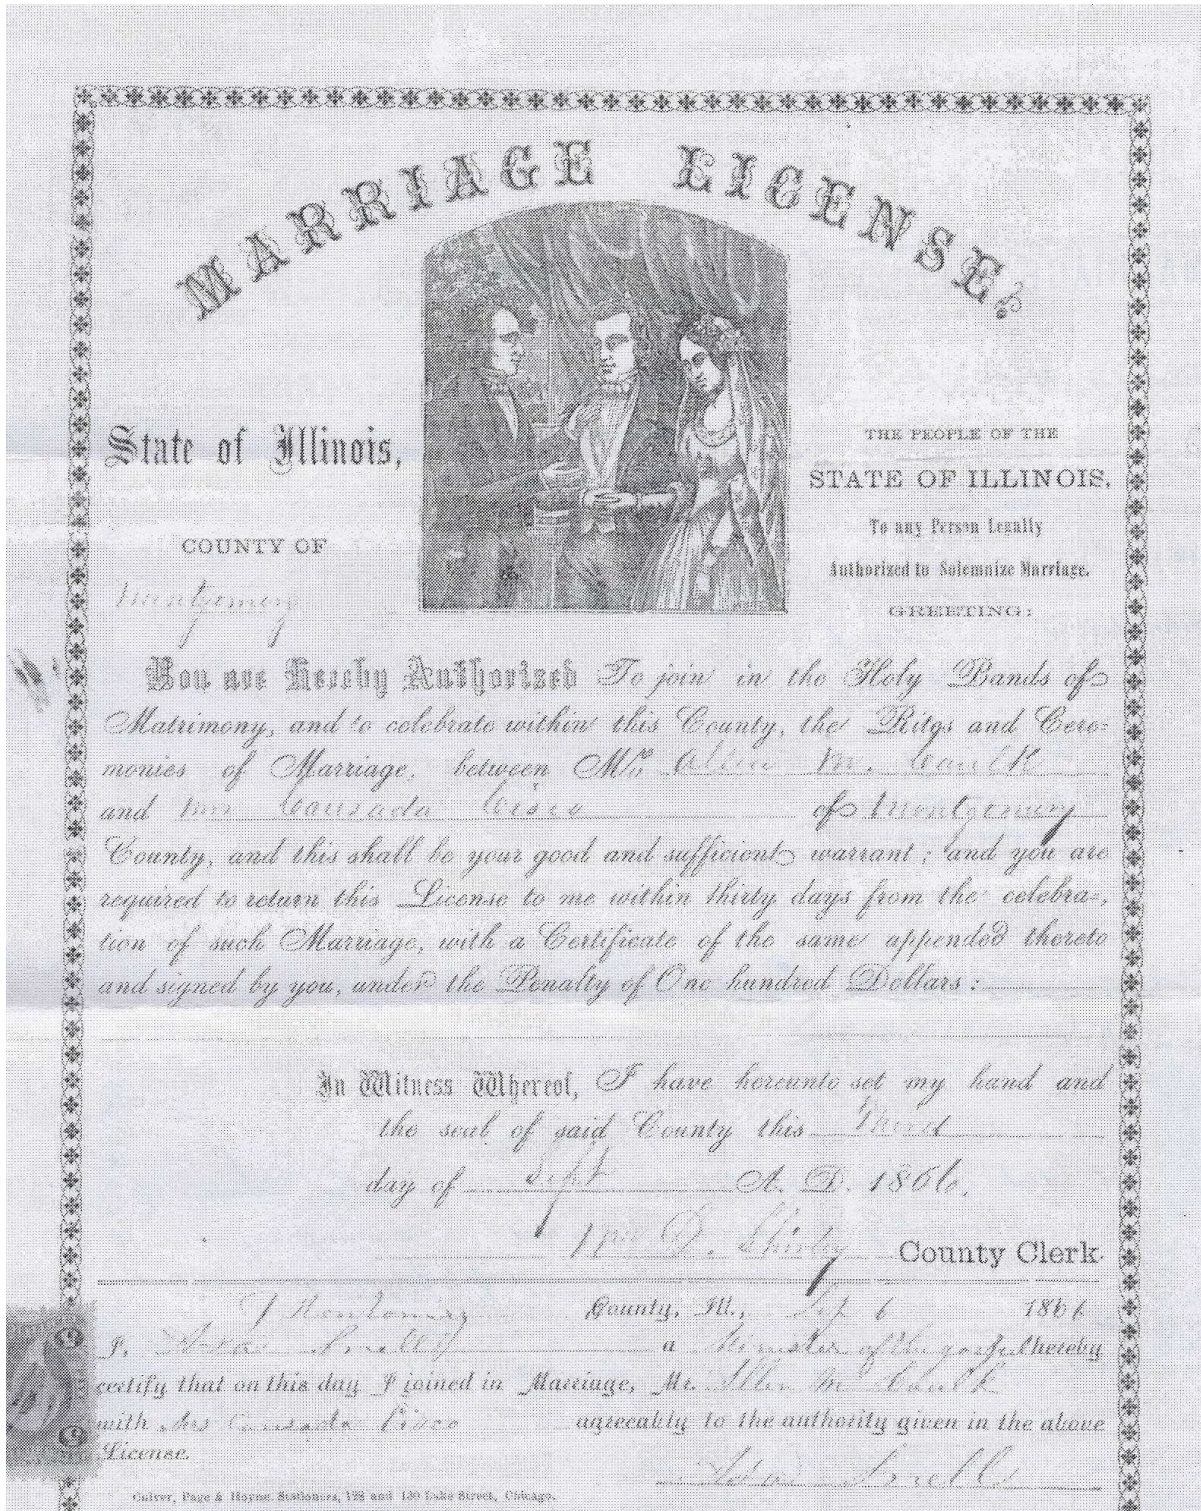 MARRIAGE LICENSE,
State of Illinois,
COUNTY OF
Montgomery
THE PEOPLE OF THE
STATE OF ILLINOIS,
To any Person Legally
Authorized to Solemnize Marriage.
GREETING:
You are Hereby Authorized To join in the Holy Bands of
Matrimony, and to celebrate within this County, the Rites and Cere-
monies of Marriage, between Mr. Allen M. Caulk
and Mrs Cansada Cisco of Montgomery
County, and this shall be your good and sufficient warrant; and you are
required to return this License to me within thirty days from the celebra-
tion of such Marriage, with a Certificate of the same appended thereto
and signed by you, under the Penalty of One hundred Dollars:
In Witness Whereof, I have hereunto set my hand and
the seal of said County this Third
day of Sept A. D. 1866.
D. Shirley County Clerk.
County, Ill., Sep 6 1866
I, a Minister of the gospel hereby
certify that on this day I joined in Marriage, Mr. Allen M Caulk
with Mrs Cansada Cisco agreeably to the authority given in the above
License.
Culver, Page & Hoyne, Stationers, 128 and 130 Lake Street, Chicago.